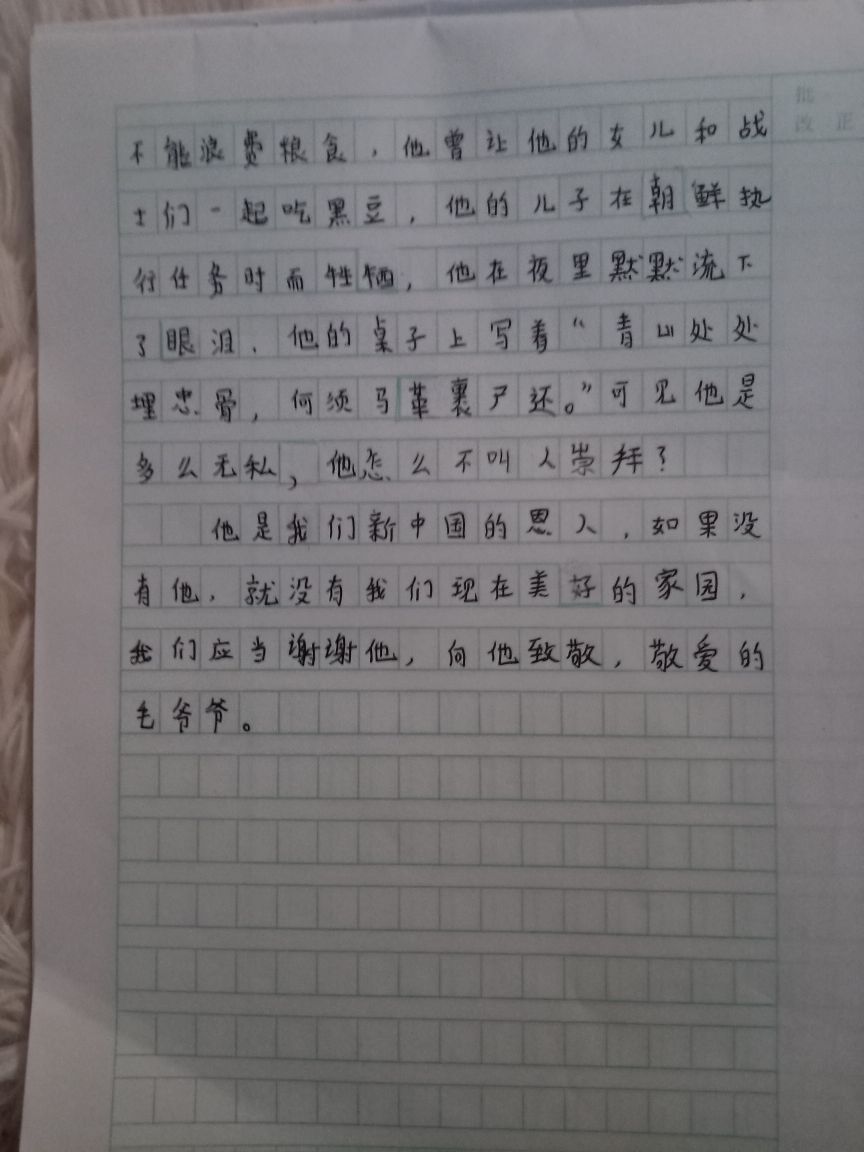 批
改正
不能浪费粮食，他曾让他的女儿和战
士们一起吃黑豆，他的儿子在朝鲜执
行任务时而牲牺，他在夜里默默流下
了眼泪．他的桌子上写着“青山处处
埋忠骨，何须马革裹尸还。”可见他是
多么无私，他怎么不叫人崇拜？
他是我们新中国的恩人，如果没
有他，就没有我们现在美好的家园，
我们应当谢谢他，向他致敬，敬爱的
毛爷爷。